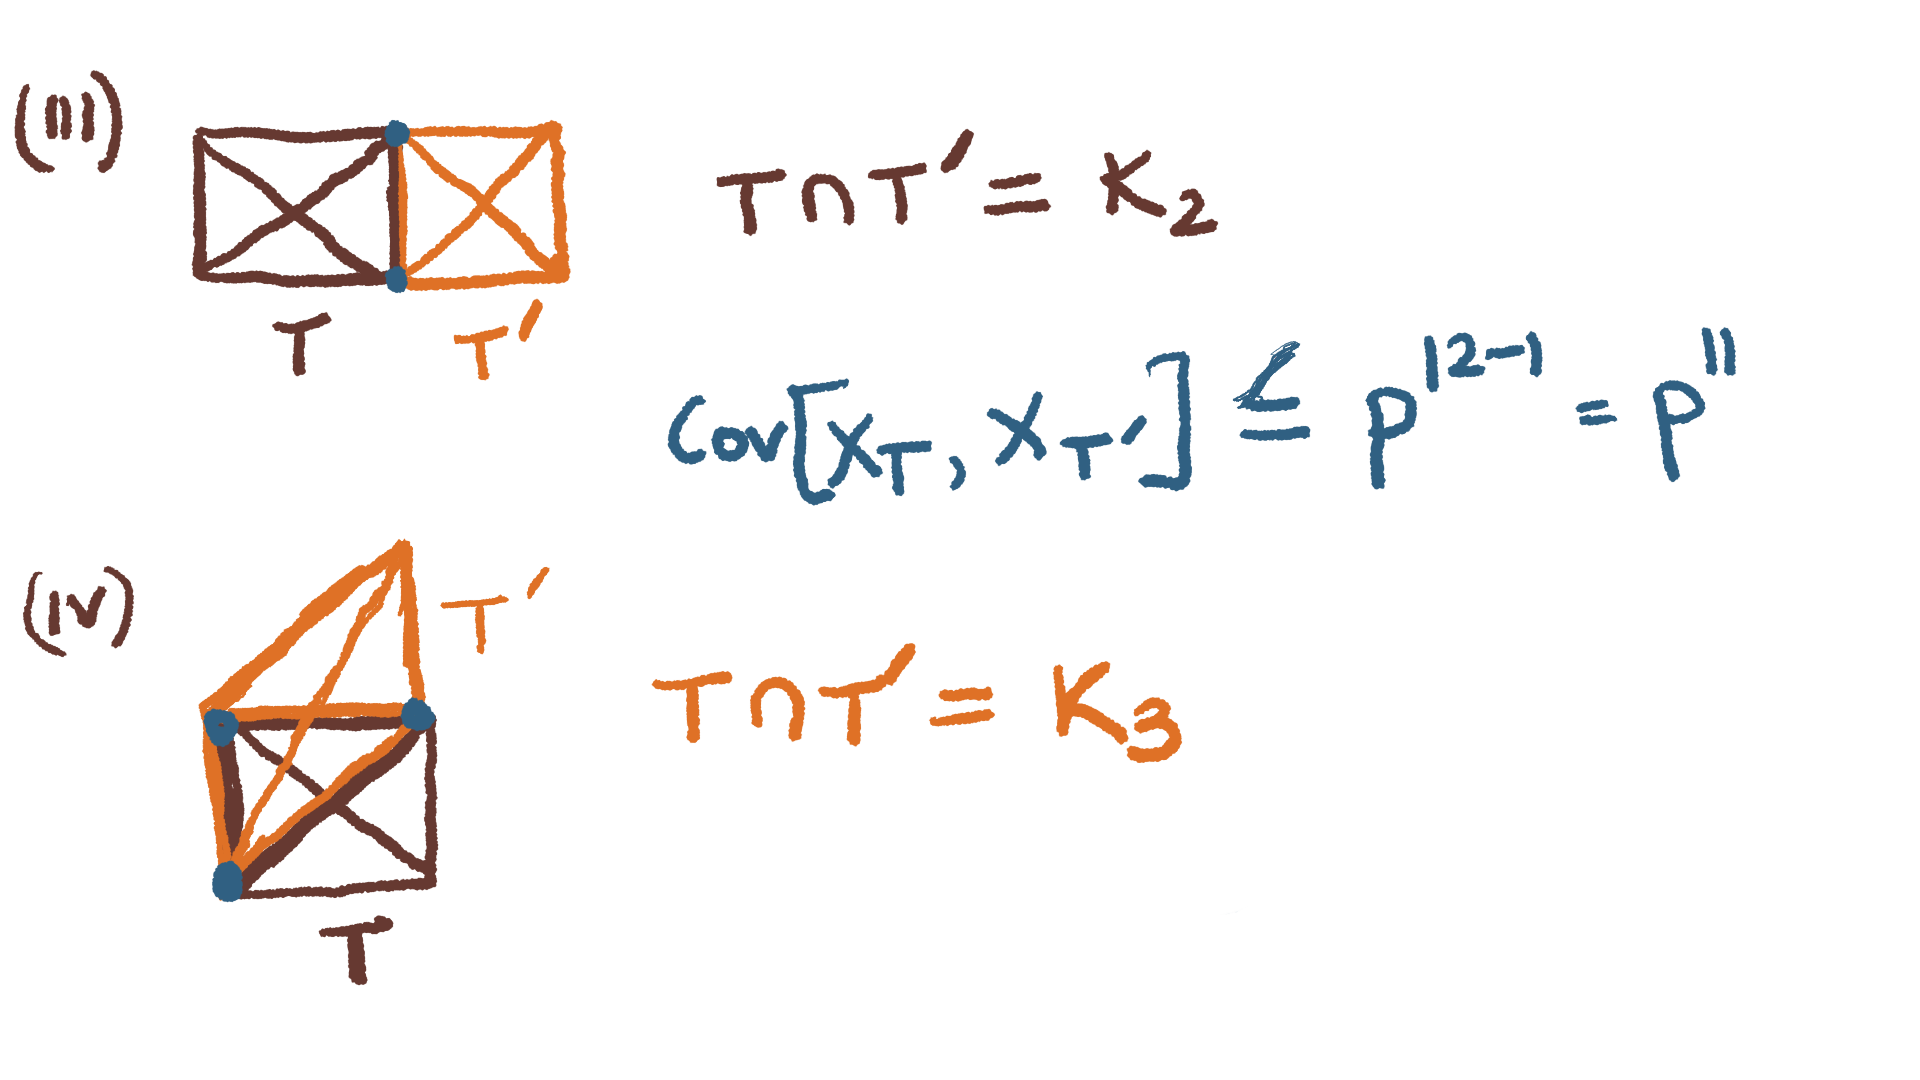 (III)
T T'
T∩T' = K₂
Cov[X_T, X_T'] ≤ p^{12-1} = p^{11}
(IV)
T'
T∩T' = K₃
T